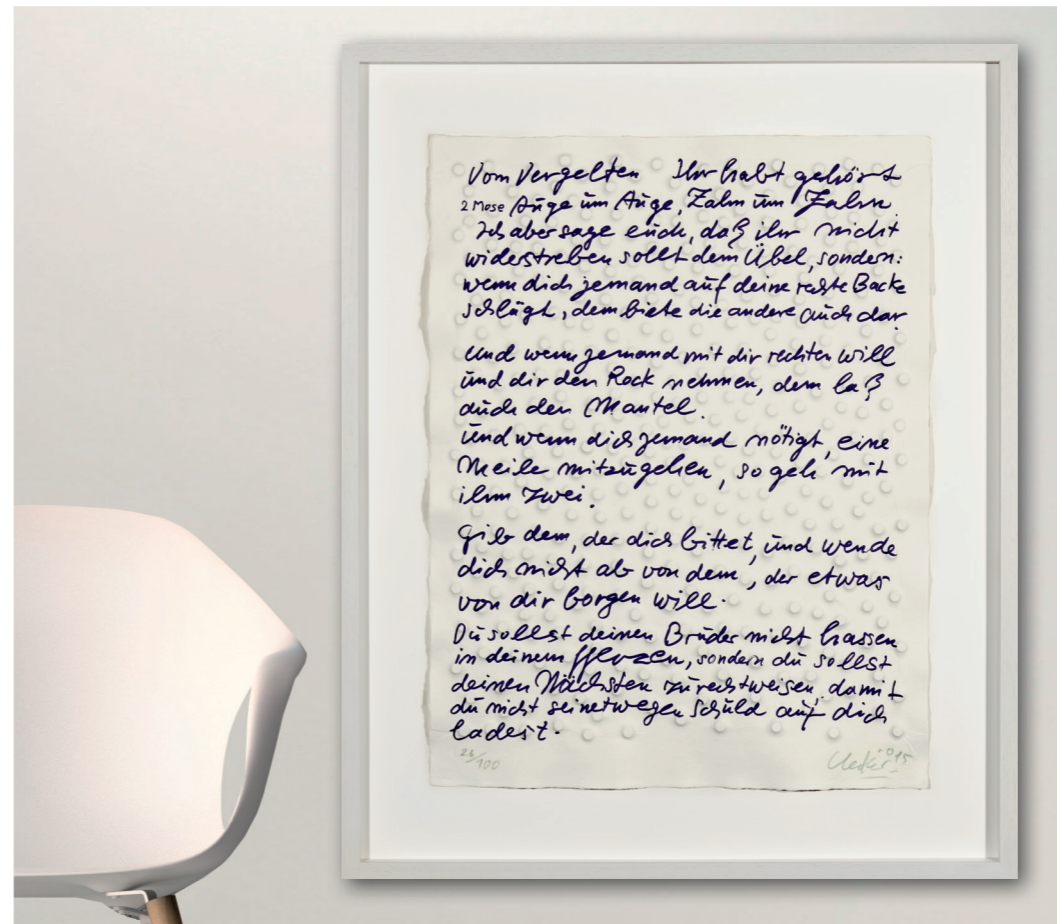 Vom Vergelten Ihr habt gehört
2 Mose Auge um Auge, Zahn um Zahn.
Ich aber sage euch, daß ihr nicht
widerstreben sollt dem Übel, sondern:
wenn dich jemand auf deine rechte Backe
schlägt, dem biete die andere auch dar
Und wenn jemand mit dir rechten will
und dir den Rock nehmen, dem laß
auch den Mantel.
Und wenn dich jemand nötigt, eine
Meile mitzugehen, so geh mit
ihm zwei.
Gib dem, der dich bittet, und wende
dich nicht ab von dem, der etwas
von dir borgen will.
Du sollst deinen Bruder nicht hassen
in deinem Herzen, sondern du sollst
deinen Nächsten zurechtweisen, damit
du nicht seinetwegen Schuld auf dich
ladest.
26/100 Uecker '015